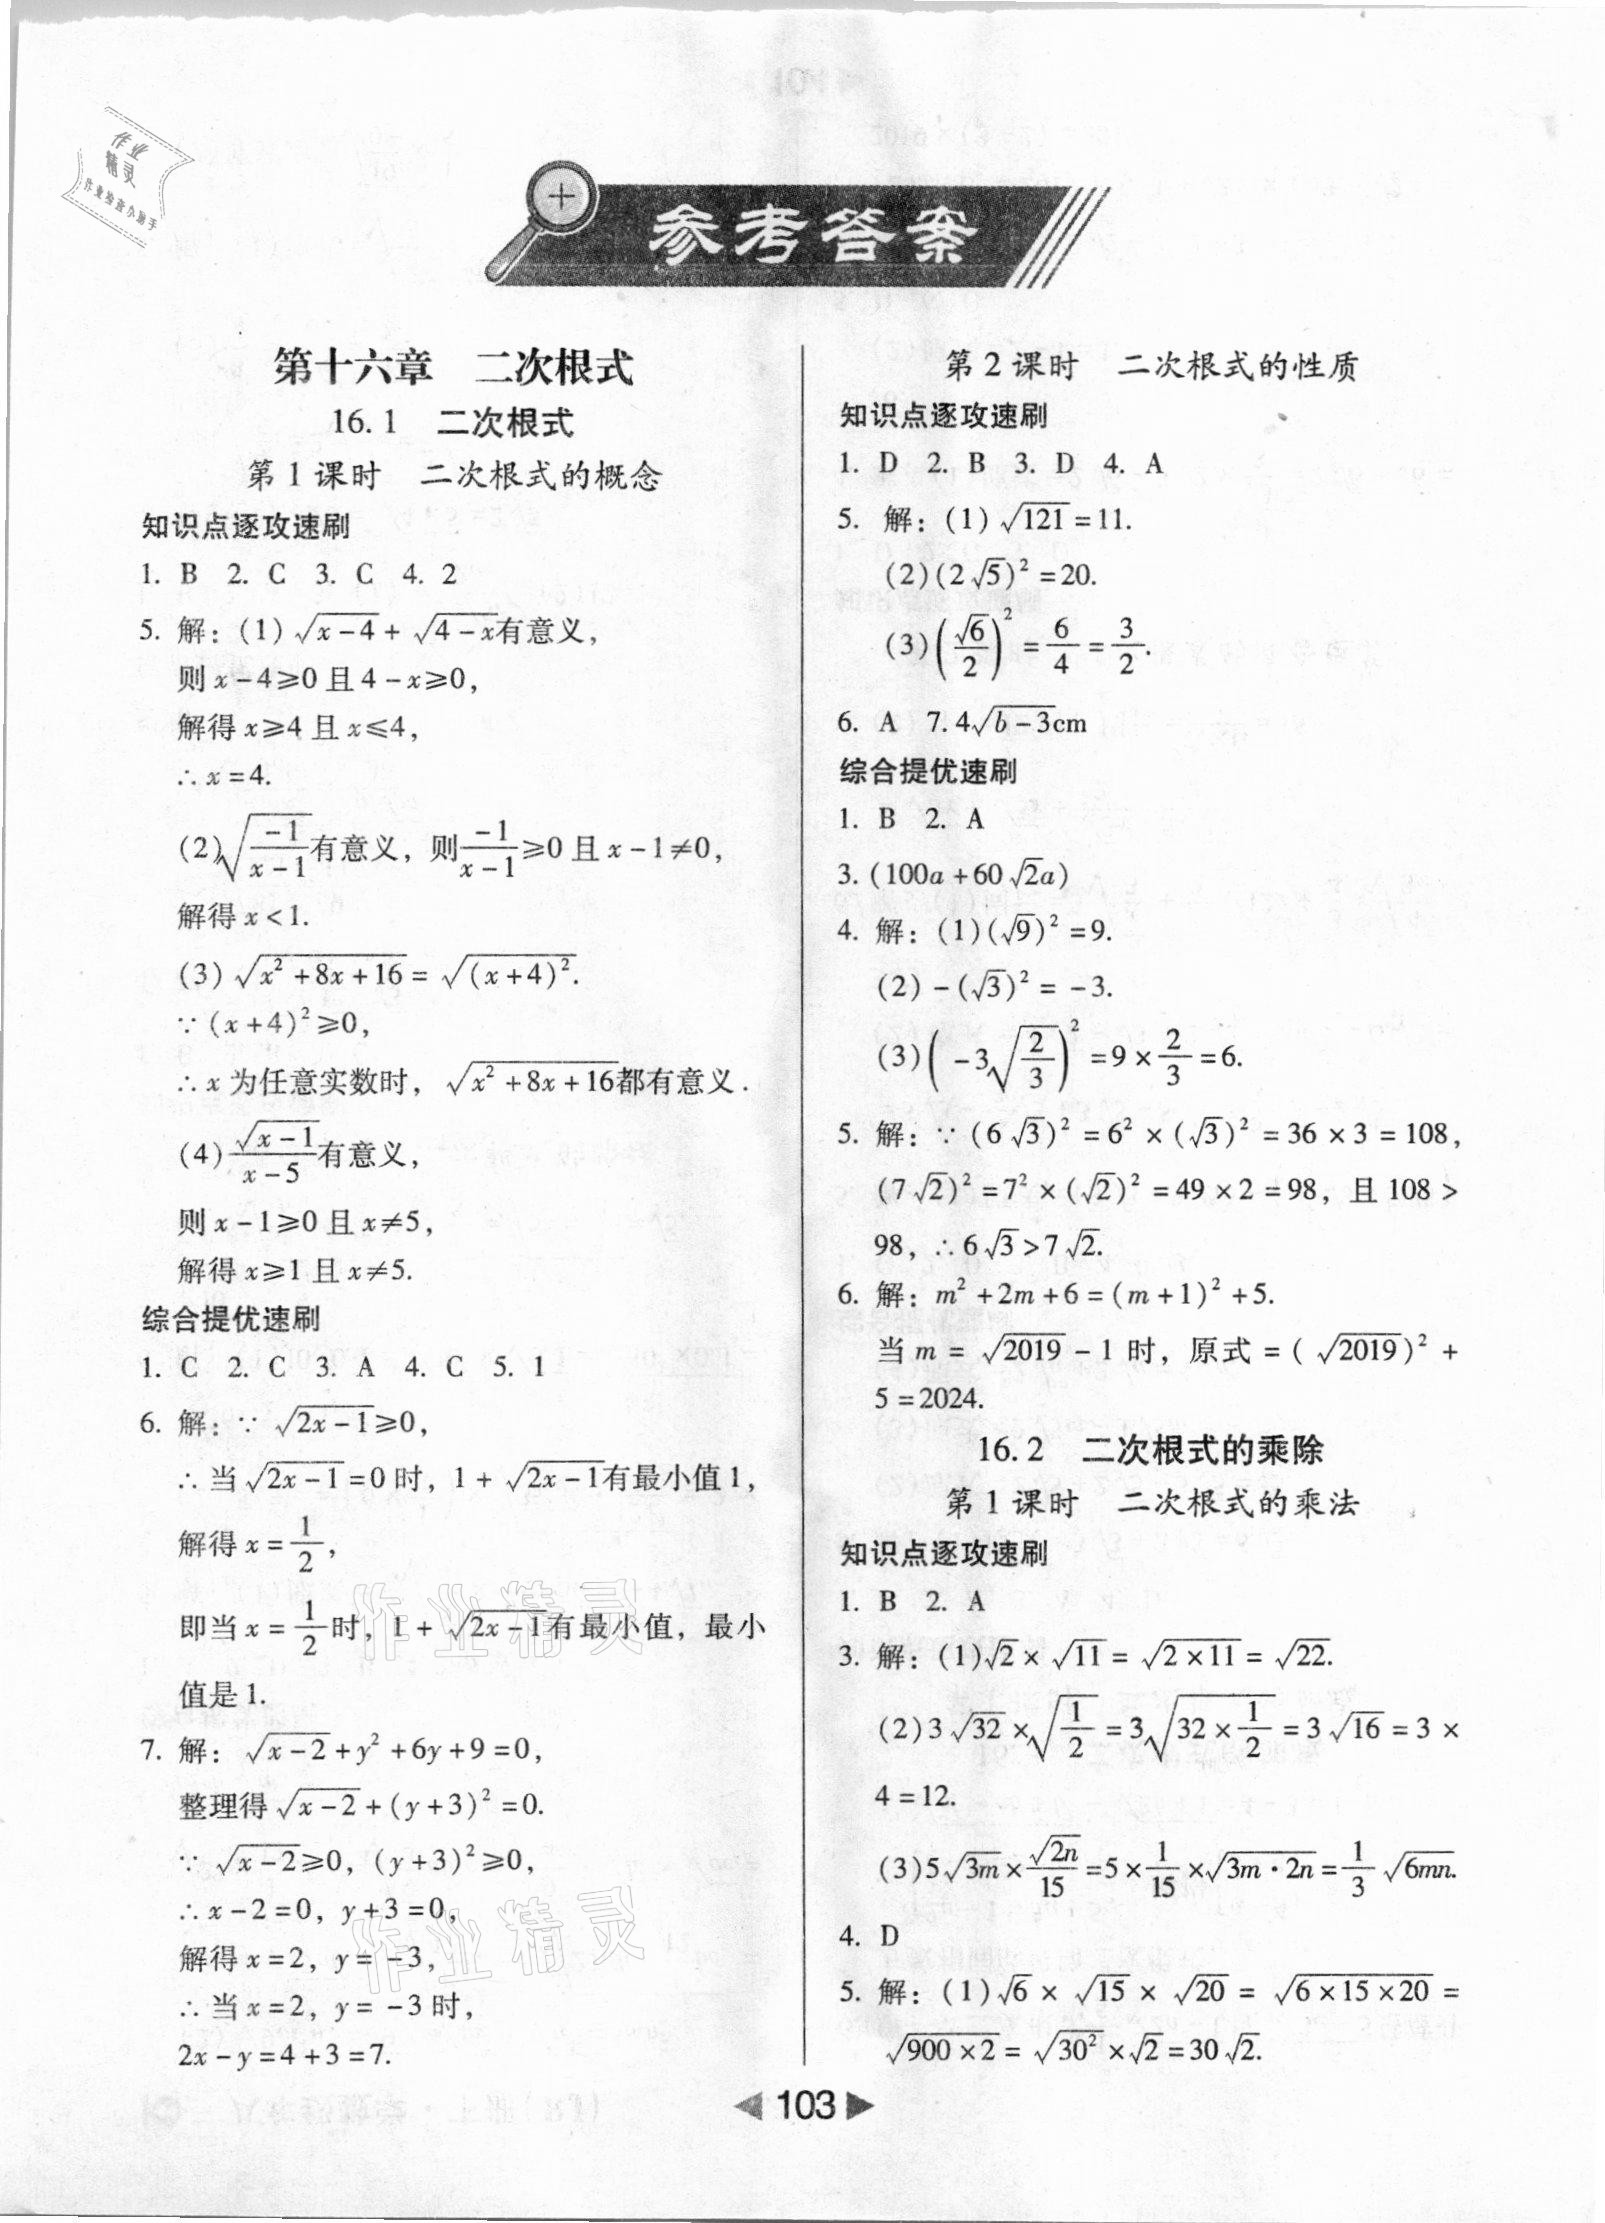 作业
精灵
作业检查小助手
参考答案
第十六章 二次根式
16.1 二次根式
第1课时 二次根式的概念
知识点逐攻速刷
1. B 2. C 3. C 4. 2
5. 解：(1)√(x-4)+√(4-x)有意义，
则x-4≥0且4-x≥0，
解得x≥4且x≤4，
∴x=4.
(2)√(-1/(x-1))有意义，则-1/(x-1)≥0且x-1≠0，
解得x<1.
(3)√(x²+8x+16)=√((x+4)²).
∵(x+4)²≥0，
∴x为任意实数时，√(x²+8x+16)都有意义.
(4)√(x-1)/(x-5)有意义，
则x-1≥0且x≠5，
解得x≥1且x≠5.
综合提优速刷
1. C 2. C 3. A 4. C 5. 1
6. 解：∵√(2x-1)≥0，
∴当√(2x-1)=0时，1+√(2x-1)有最小值1，
解得x=1/2，
即当x=1/2时，1+√(2x-1)有最小值，最小
值是1.
7. 解：√(x-2)+y²+6y+9=0，
整理得√(x-2)+(y+3)²=0.
∵√(x-2)≥0，(y+3)²≥0，
∴x-2=0，y+3=0，
解得x=2，y=-3，
∴当x=2，y=-3时，
2x-y=4+3=7.
第2课时 二次根式的性质
知识点逐攻速刷
1. D 2. B 3. D 4. A
5. 解：(1)√121=11.
(2)(2√5)²=20.
(3)(√6/2)²=6/4=3/2.
6. A 7. 4√(b-3)cm
综合提优速刷
1. B 2. A
3. (100a+60√2a)
4. 解：(1)(√9)²=9.
(2)-(√3)²=-3.
(3)(-3√(2/3))²=9×2/3=6.
5. 解：∵(6√3)²=6²×(√3)²=36×3=108，
(7√2)²=7²×(√2)²=49×2=98，且108>
98，∴6√3>7√2.
6. 解：m²+2m+6=(m+1)²+5.
当m=√2019-1时，原式=(√2019)²+
5=2024.
16.2 二次根式的乘除
第1课时 二次根式的乘法
知识点逐攻速刷
1. B 2. A
3. 解：(1)√2×√11=√(2×11)=√22.
(2)3√32×√(1/2)=3√(32×1/2)=3√16=3×
4=12.
(3)5√(3m)×√(2n)/15=5×1/15×√(3m·2n)=1/3√(6mn).
4. D
5. 解：(1)√6×√15×√20=√(6×15×20)=
√(900×2)=√(30²)×√2=30√2.
作业精灵
作业精灵
103